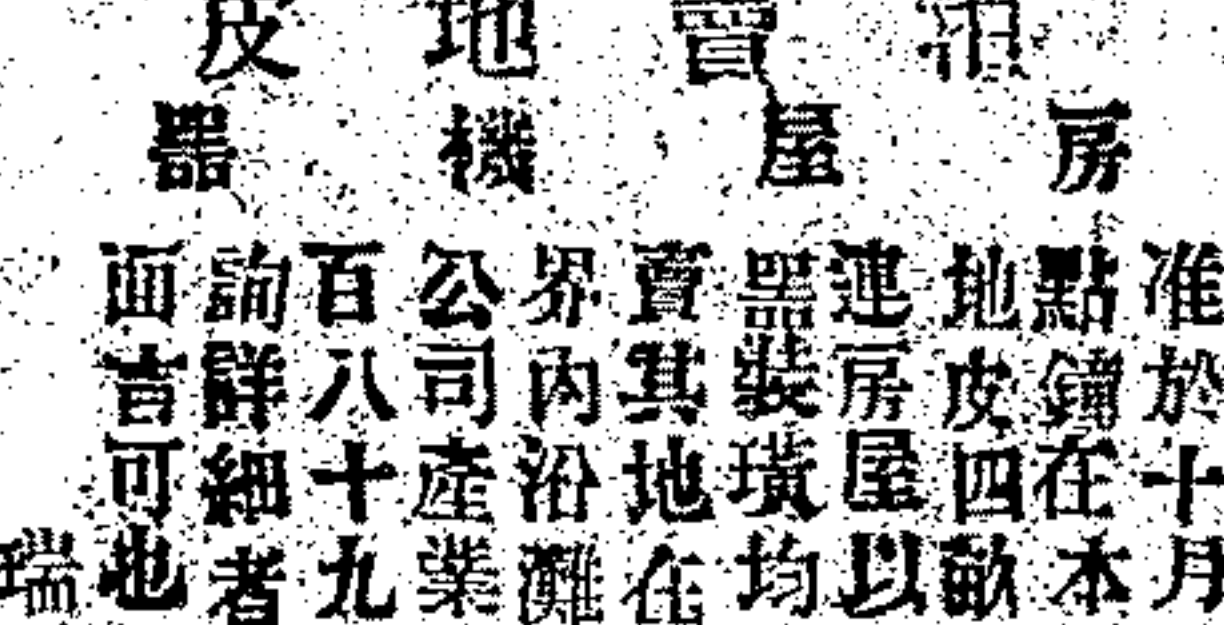 拍賣地皮
房屋機器
准於十月
點鐘在本
地皮四畝
連房屋以
器裝璜均
賣其地在
界內沿灘
公司產業
百八十九
詢詳細者
面言可也
瑞